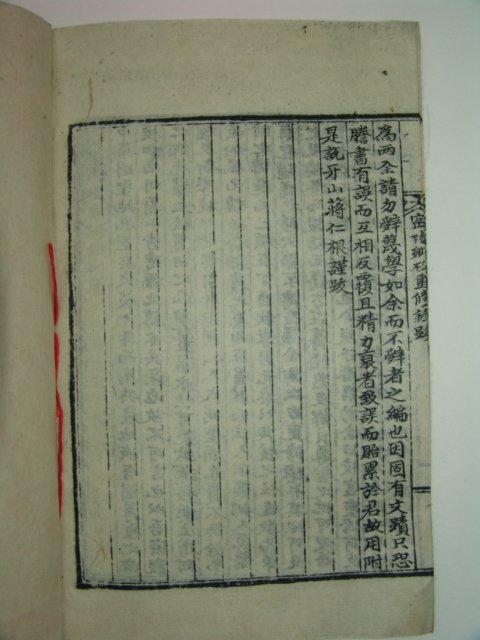 密陽鄕校重修錄跋
爲兩全請力辭蔑學如余而不辭者之編也因固有文蹟只恐
謄書有誤而互相反覆且精力衰者致誤而貽累於君故用附
是說牙山蔣仁根謹跋